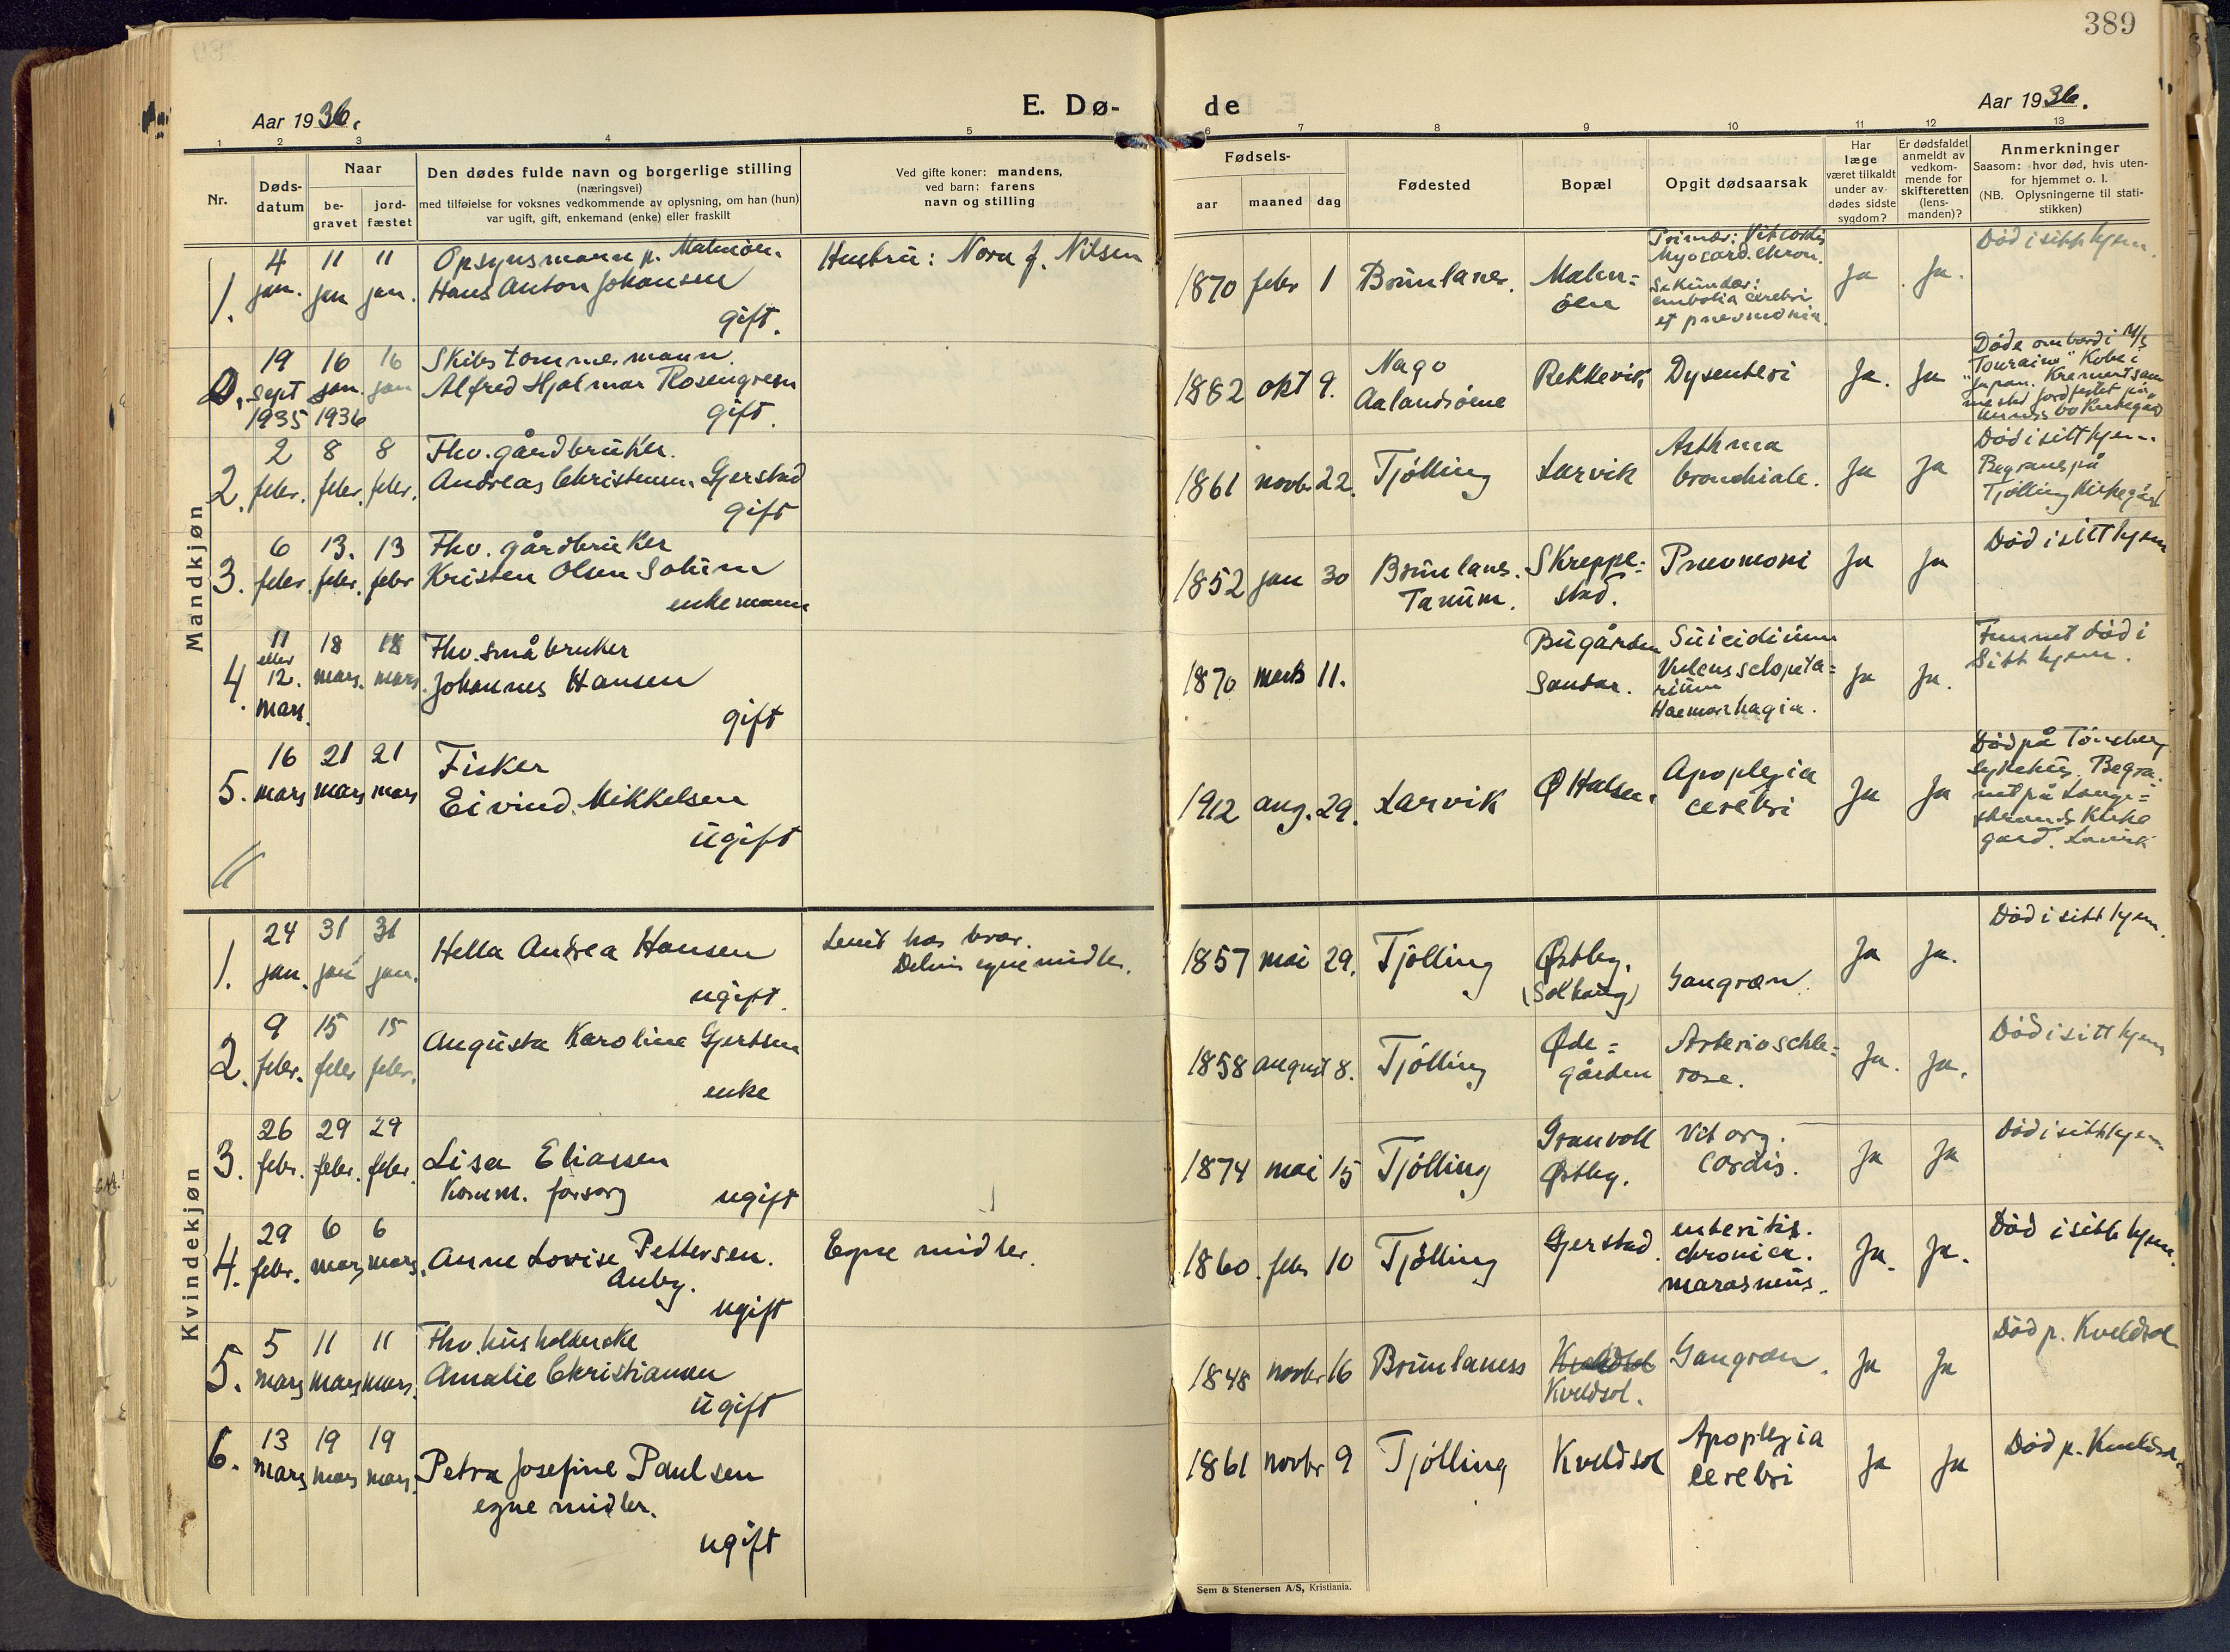 389
Aar 1936.
E. Dø-
de
Aar 1936.
1 2 3 4 5 6 7 8 9 10 11 12 13
Nr.
Døds-
datum
Naar
be-
gravet
jord-
fæstet
Den dødes fulde navn og borgerlige stilling
(næringsvei)
med tilføielse for voksnes vedkommende av oplysning, om han (hun)
var ugift, gift, enkemand (enke) eller fraskilt
Ved gifte koner: mandens,
ved barn: farens
navn og stilling
Fødsels-
aar maaned dag
Fødested
Bopæl
Opgit dødsaarsak
Har
læge
været tilkaldt
under av-
dødes sidste
sygdom?
Er dødsfaldet
anmeldt av
vedkom-
mende for
skifteretten
(lens-
manden)?
Anmerkninger
Saasom: hvor død, hvis uten-
for hjemmet o. l.
(NB. Oplysningerne til stati-
stikken)
Mandkjøn
1.
4 jan.
11 jan
11 jan.
Opsynsmann p. Malmöen.
Hans Anton Johansen
gift.
Hustru: Nora f. Nilsen
1870 febr 1
Brunlanes.
Malm=
öen
Primær: Vit cordis
Myocard. chron.
Sekundær:
embolia cerebri
et pneumonia.
Ja
Ja.
Död i sitt hjem.
0.
19 sept 1935
16 jan. 1936
16 jan
Skibstømmermann.
Alfred Hjalmar Rosengren
gift.
1882 okt 9.
Nago
Aalandsöene
Rekkevik
Dysenteri
Ja.
Ja
Döde ombord i M/S
"Touraine" Kobe i
Japan.
2.
2 febr.
8 febr.
8 febr.
Fhv. gårdbruker.
Andreas Christensen Gjerstad
gift
1861 novbr 22.
Tjölling
Larvik
Asthma
bronchiale.
Ja
Ja
Död i sitt hjem.
Begraves på
Tjölling Kirkegård
3.
6 febr.
13. febr.
13 febr
Fhv. gårdbruker
Kristen Olsen Solum
enkemann
1852 jan 30
Brunlanes.
Tanum.
Skreppe=
stad.
Pneumoni
Ja
Ja
Död i sitt hjem
4.
11 eller 12. mars.
18 mars.
18 mars.
Fhv. småbruker
Johannes Hansen
gift
1870 mars 11.
Bugården
Sandar.
Suicidium
Vulcus sclopeta=
rium
Haemorrhagia.
Ja
Ja.
Funnet död i
sitt hjem.
5.
16 mars
21 mars
21 mars
Fisker
Eivind Mikkelsen
ugift
1912 aug. 29.
Larvik
Ø Halsen.
Apoplexia
cerebri
Ja
Ja
Död på Tönsberg
sykehus. Begra-
vet på Lange=
strands Kirke
gård. Larvik
Kvindekjøn
1.
24 jan.
31 jan
31 jan.
Hella Andrea Hansen
ugift.
hos bror.
Delvis egne midler.
1857 mai 29.
Tjölling
Østby.
(Solhaug)
Gangræn.
Ja
Ja.
Död i sitt hjem.
2.
9 febr.
15 febr
15 febr.
Augusta Karoline Gjertsen
enke
1858 august 8.
Tjölling
Øde=
gården
Arterioschle=
rose.
Ja.
Ja.
Död i sitt hjem
3.
26 febr.
29 febr.
29 febr.
Lisa Eliassen
Komm. forsorg ugift
1874 mai 15
Tjölling
Granvoll
Østby.
Vit org.
cordis.
Ja
Ja
Död i sitt hjem
4.
29 febr.
6 mars
6 mars.
Anne Lovise Pettersen.
Auby.
ugift
Egne midler.
1860. febr 10
Tjölling
Gjerstad.
enteritis.
chronica.
marasmus.
Ja.
Ja.
Död i sitt hjem.
5.
5 mars
11 mars
11 mars.
Fhv. husholderske
Amalie Christiansen
ugift
1848 novbr 16
Brunlaness
Kveldsol
Kveldsol.
Gangræn.
Ja
Ja
Död p. Kveldsol
6.
13 mars
19 mars
19 mars.
Petra Josefine Paulsen
egne midler.
ugift
1861 novbr 9
Tjölling
Kveldsol
Apoplexia
cerebri
Ja
Ja
Död p. Kveldsol.
Sem & Stenersen A/S, Kristiania.